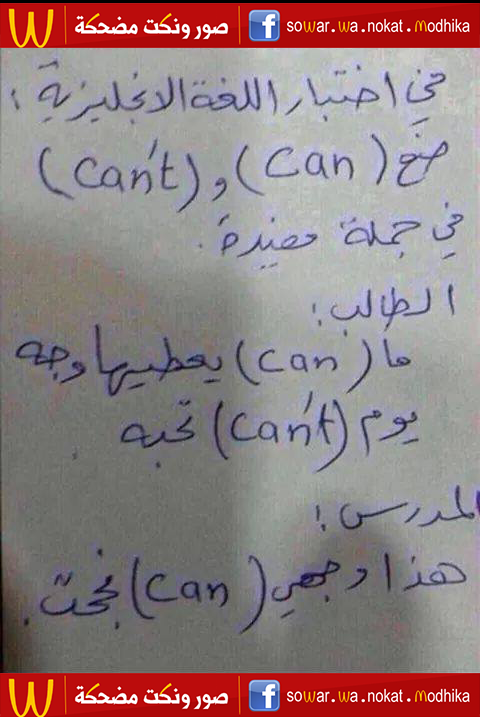 صور ونكت مضحكة sowar.wa.nokat.modhika
في اختبار اللغة الانجليزية :
ضع (can) و (can't)
في جملة مفيدة .
الطالب :
ما (can) يعطيها وجه
يوم (can't) تحبه .
المدرس :
هذا وجهي (can) نجحت .
صور ونكت مضحكة sowar.wa.nokat.modhika